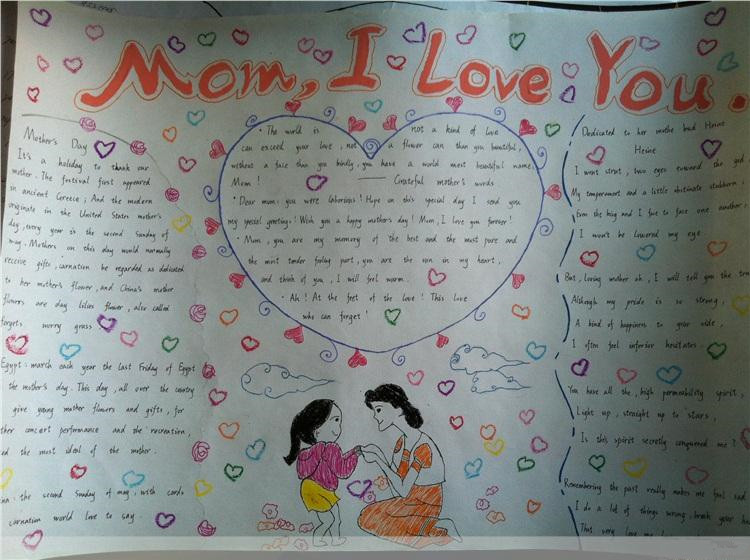 Mom, I Love You.
Mother's Day
It's a holiday to thank our
mother. The festival first appeared
in ancient Greece, And the modern
originate in the United States mother's
day, every year is the second Sunday of
may. Mothers on this day would normally
receive gifts, carnation be regarded as dedicated
to her mother's flower, and China's mother
flowers are day lilies flower, also called
forgets worry grass
Egypt: march each year the last Friday of Egypt
the mother's day. This day, all over the country
give young mother flowers and gifts, for
ther concert performance and the recreation,
ed the most ideal of the mother.
: the second Sunday of may, with cards
carnation world love to say.
· The world is not a kind of love
can exceed your love, not a flower can than you beautiful,
without a face than you kindly, you have a world most beautiful name,
Mom! —— Grateful mother's words
· Dear mom: you were laborious! Hope on this special day I send you
my special greetings! Wish you a happy mother's day! Mum, I love you forever!
· Mum, you are my memory of the best and the most pure and
the most tender feeling part, you are the sun in my heart,
and think of you, I will feel warm.
· Ah! At the feet of the love! This love
who can forget!
Dedicated to her mothe Heine
Heine
I wont strut, two eyes toward the
My temperament and a little obstinate stubborn
Even the king and I face to face one another,
I won't be lowered my eye
But, loving mother ah, I will tell you the
Although my pride is so strong,
A kind of happiness to your side,
I often feel inferior hesitates.
You have all the, high permeability spirit,
Light up, straight up to stars,
Is this spirit secretly conquered me?
Remembering the past really makes me feel sad
I do a lot of things wrong, break your
This very love me